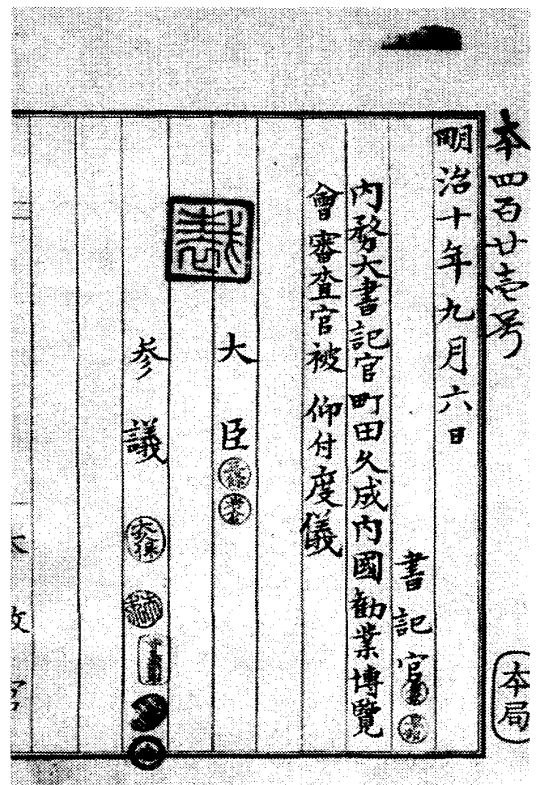 本四百廿壱号
明治十年九月六日
書記官
内務大書記官町田久成内國勧業博覧
會審査官被 仰付度儀
裁
大臣
参議
本局